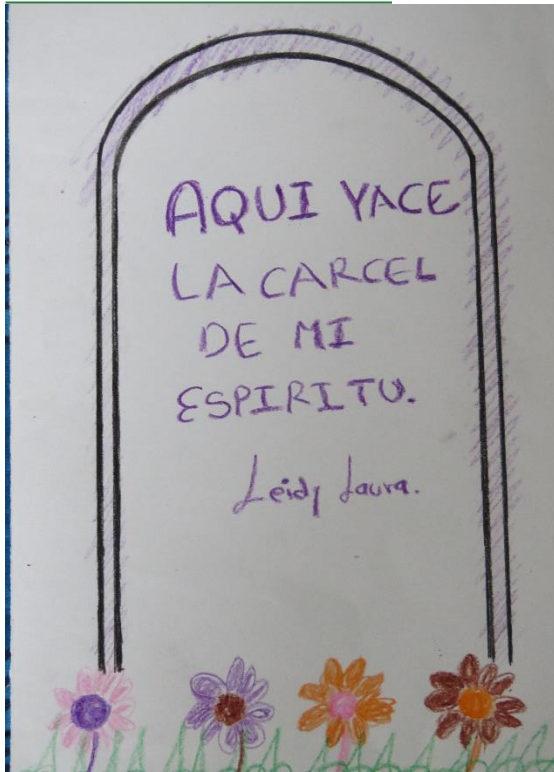 AQUI YACE
LA CARCEL
DE MI
ESPIRITU.
Leidy Laura.